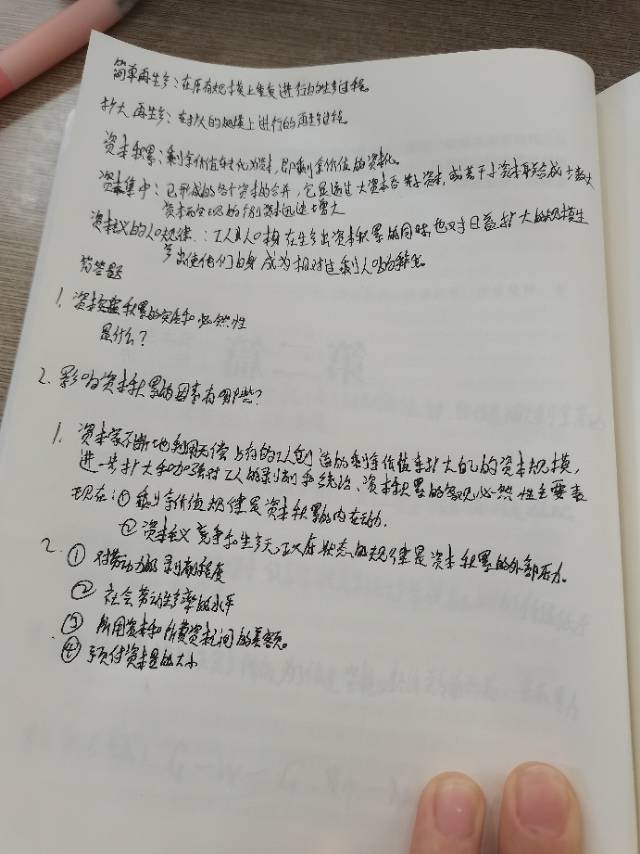 简单再生产：在原有规模上重复进行的生产过程。
扩大再生产：在扩大的规模上进行的再生产过程。
资本积累：剩余价值转化为资本，即剩余价值的资本化。
资本集中：已形成的各个资本的合并，它是通过大资本吞并小资本，或若干小资本联合成少数大
资本而实现的个别资本迅速增大
资本主义的人口规律：工人人口本身在生产出资本积累的同时，也以日益扩大的规模生
产出使他们自身成为相对过剩人口的手段。
简答题
1. 资本积累的实质和必然性
是什么？
2. 影响资本积累的因素有哪些？
1. 资本家不断地利用无偿占有的工人创造的剩余价值来扩大自己的资本规模，
进一步扩大和加强对工人的剥削和统治。资本积累的客观必然性主要表
现在：① 剩余价值规律是资本积累的内在动力.
② 资本主义竞争和生产无政府状态的规律是资本积累的外部压力。
2. ① 对劳动力的剥削程度
② 社会劳动生产率的水平
③ 所用资本和所费资本之间的差额。
④ 预付资本量的大小
第二篇